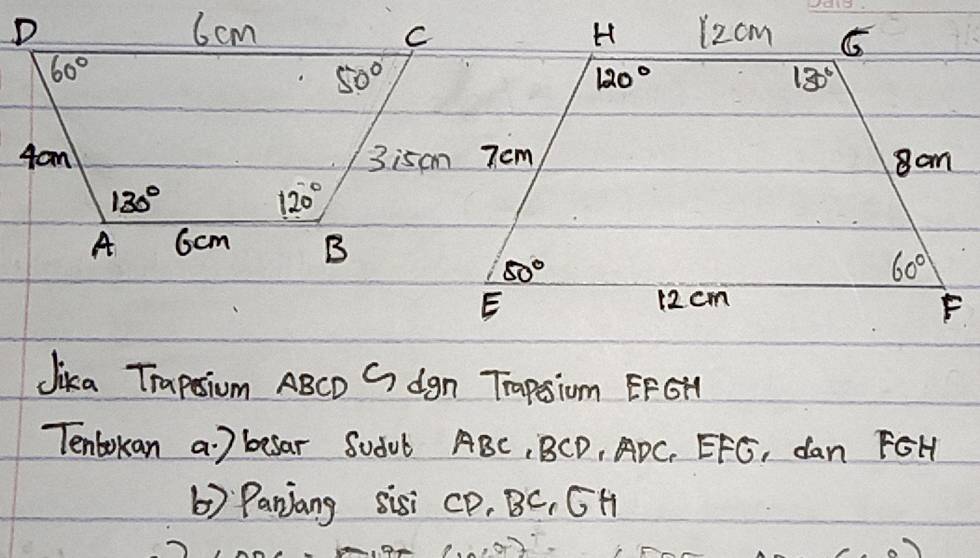 D 6cm C H 12cm G
60° 50° 120° 130°
4cm 3,5cm 7cm 8cm
130° 120°
A 6cm B 50° 60°
E 12cm F
Jika Trapesium ABCD ∽ dgn Trapesium EFGH
Tentukan a.) besar sudut ABC, BCD, ADC, EFG, dan FGH
b) Panjang sisi CD, BC, GH